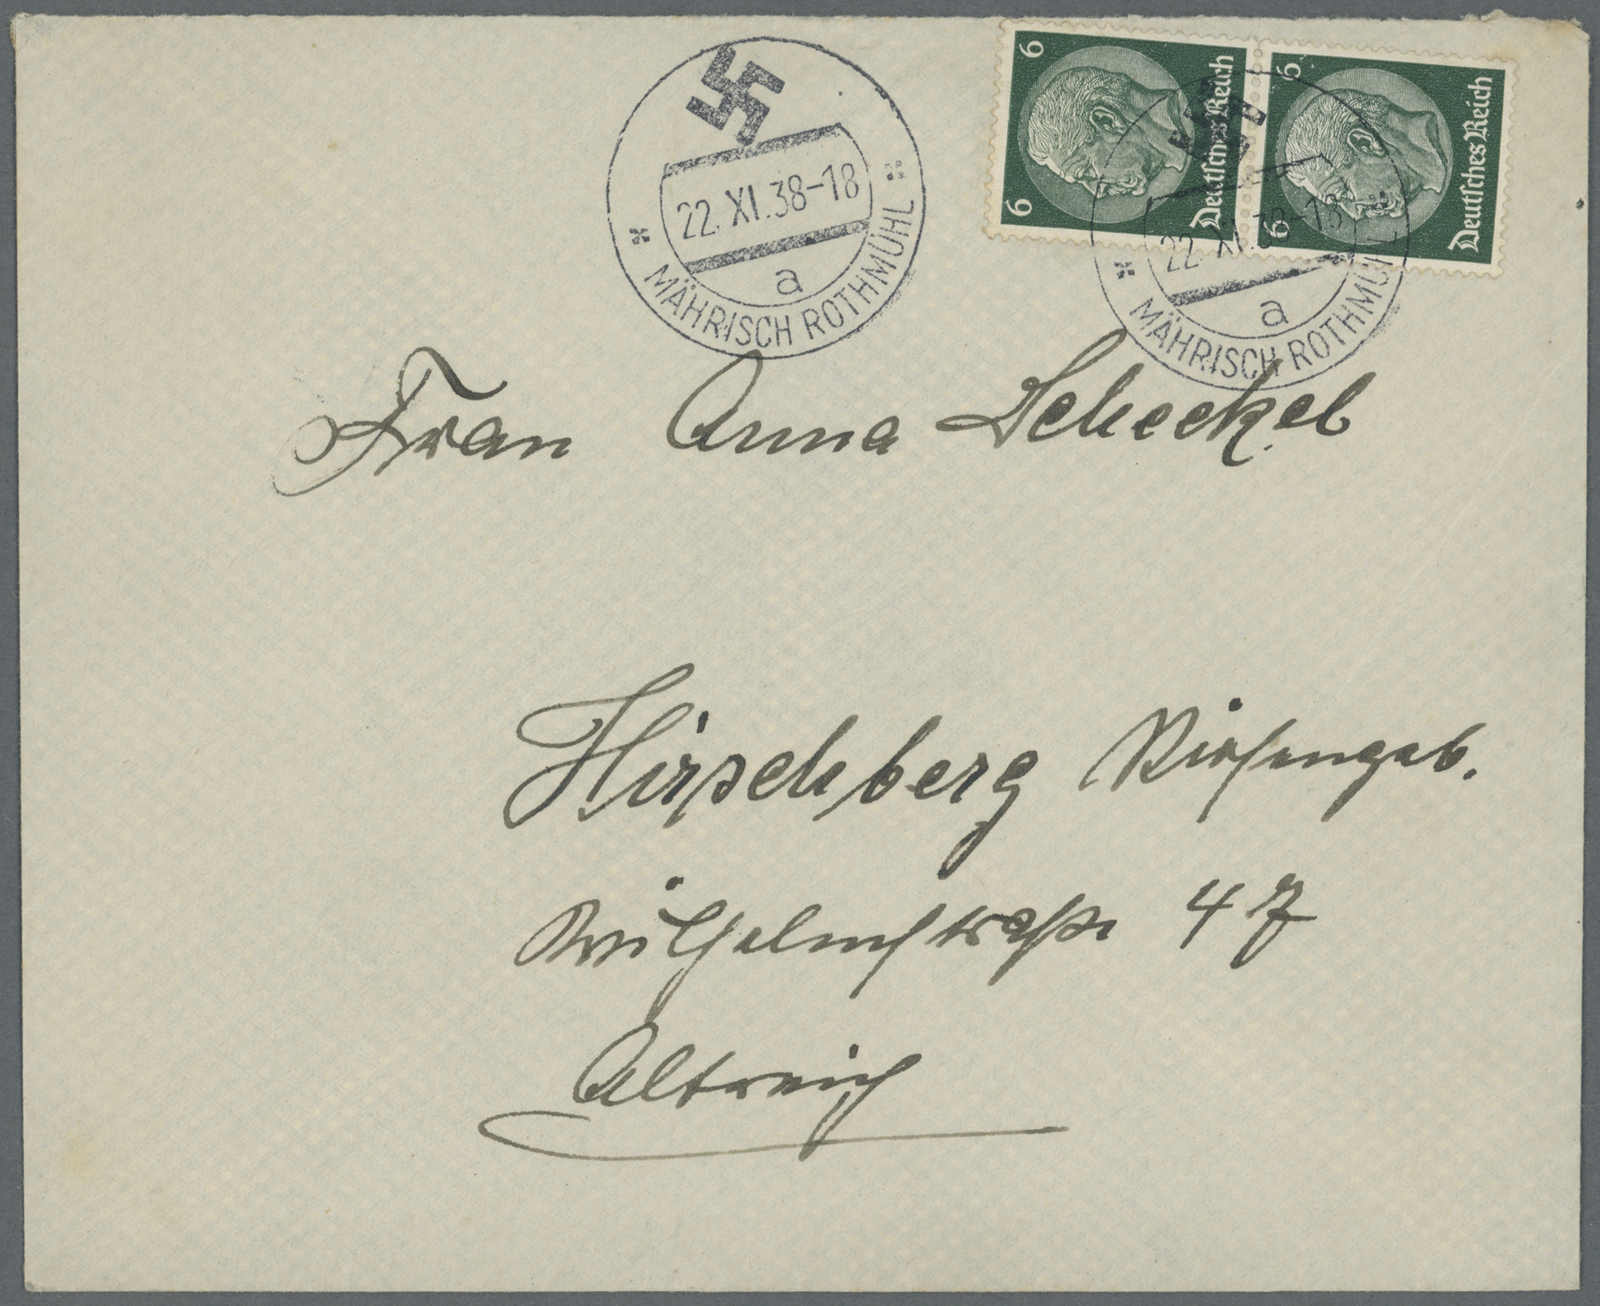 22.XI.38-18
a
MÄHRISCH ROTHMÜHL
6 Deutsches Reich 6
6 Deutsches Reich 6
22.XI.38-18
a
MÄHRISCH ROTHMÜHL
Frau Anna Scheckel
Hirschberg Riesengeb.
Wilhelmstraße 47
Altreich